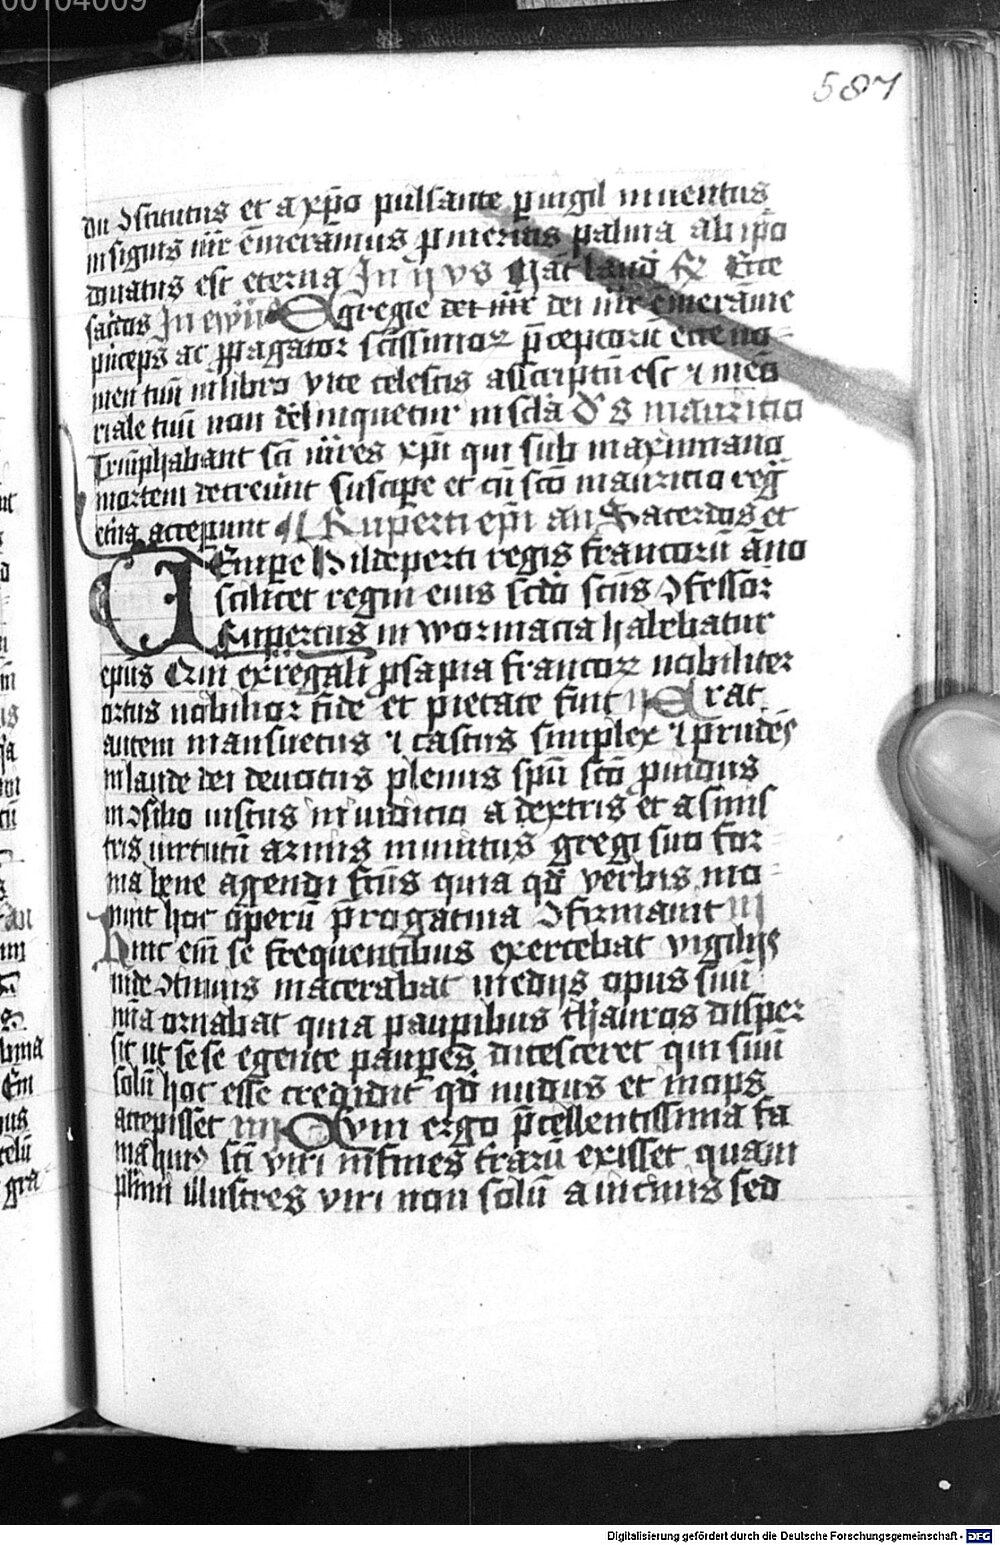 00104009
587
diu ɔstitutus et a xp̄o pulsante p̲uigil inuentus
insignis mr̄ em̄eramus p̲ meritis palma ab ip̄o
donatus est eterna In ij vs Mat laud
sacdos In ewī Egregie dei mr̄ dei mr̄ emerame
pͥnceps ac ꝓpagator sc̄issimoꝝ p̄ceptoru ecce no-
men tuū in libro vite celestis asscriptū est ⁊ mēo
riale tuū non delinquetur in scl̄a De s mauricio
Triūphabant sc̄i mr̄es xp̄i qui sub maximiano
mortem decreuūt suscipe et cū sc̄o mauricio reg̅
et̄na accep̲unt Ruperti ep̄i an Sacerdos et
Tempe Hildeperti regis francorū āno
scilicet regni eius sc̄do sc̄us ɔfessor
Rupertus in wormacia habebatur
ep̄us Qui ex regali p̲sapia francoꝝ nobiliter
ortus nobilior fide et pietate fuit ij Erat
autem mansuetus ⁊ castus simplex ⁊ prudēs
in laude dei deuotus plenus sp̄u sc̄o p̲uidus
in ɔsilio iustus in iudicio a dextris et a sinis
tris uirtutū armis munitus gregi suo for-
ma bene agendi fc̄us quia qd̄ verbis mo-
nuit hoc operū p̄rogatiua ɔfirmauit iij
Hinc eni se frequentibus exercebat vigilijs
inde ɔtinuis macerabat inedijs opus suū
mīa ornabat quia paupibus thauros disper
sit ut sese egente paupes ditesceret qui suū
solū hoc esse credidit qd̄ nudus et inops
accepisset iiij Cum ergo p̄cellentissima fa
ma huiꝰ sc̄i viri in fines frarū exisset quam
pl̄imi illustres viri non solū a uicinis sed
Digitalisierung gefördert durch die Deutsche Forschungsgemeinschaft - DFG